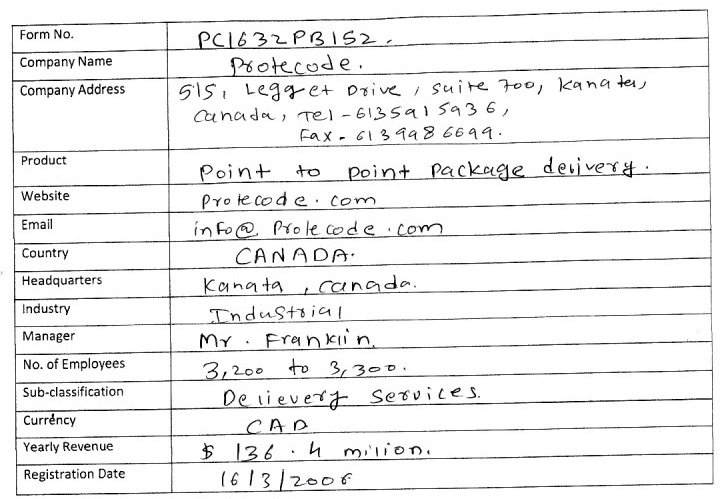 Form No. PC1632PB152.
Company Name Protecode.
Company Address 515, Legget Drive, suite 700, Kanata,
Canada, Tel - 6135915936,
Fax - 6139986699.
Product Point to point package delivery.
Website Protecode.com
Email info@Protecode.com
Country CANADA.
Headquarters Kanata, Canada.
Industry Industrial
Manager Mr. Franklin.
No. of Employees 3,200 to 3,300.
Sub-classification Delievery Services.
Currency CAD
Yearly Revenue $ 136.4 milion.
Registration Date 16/3/2006